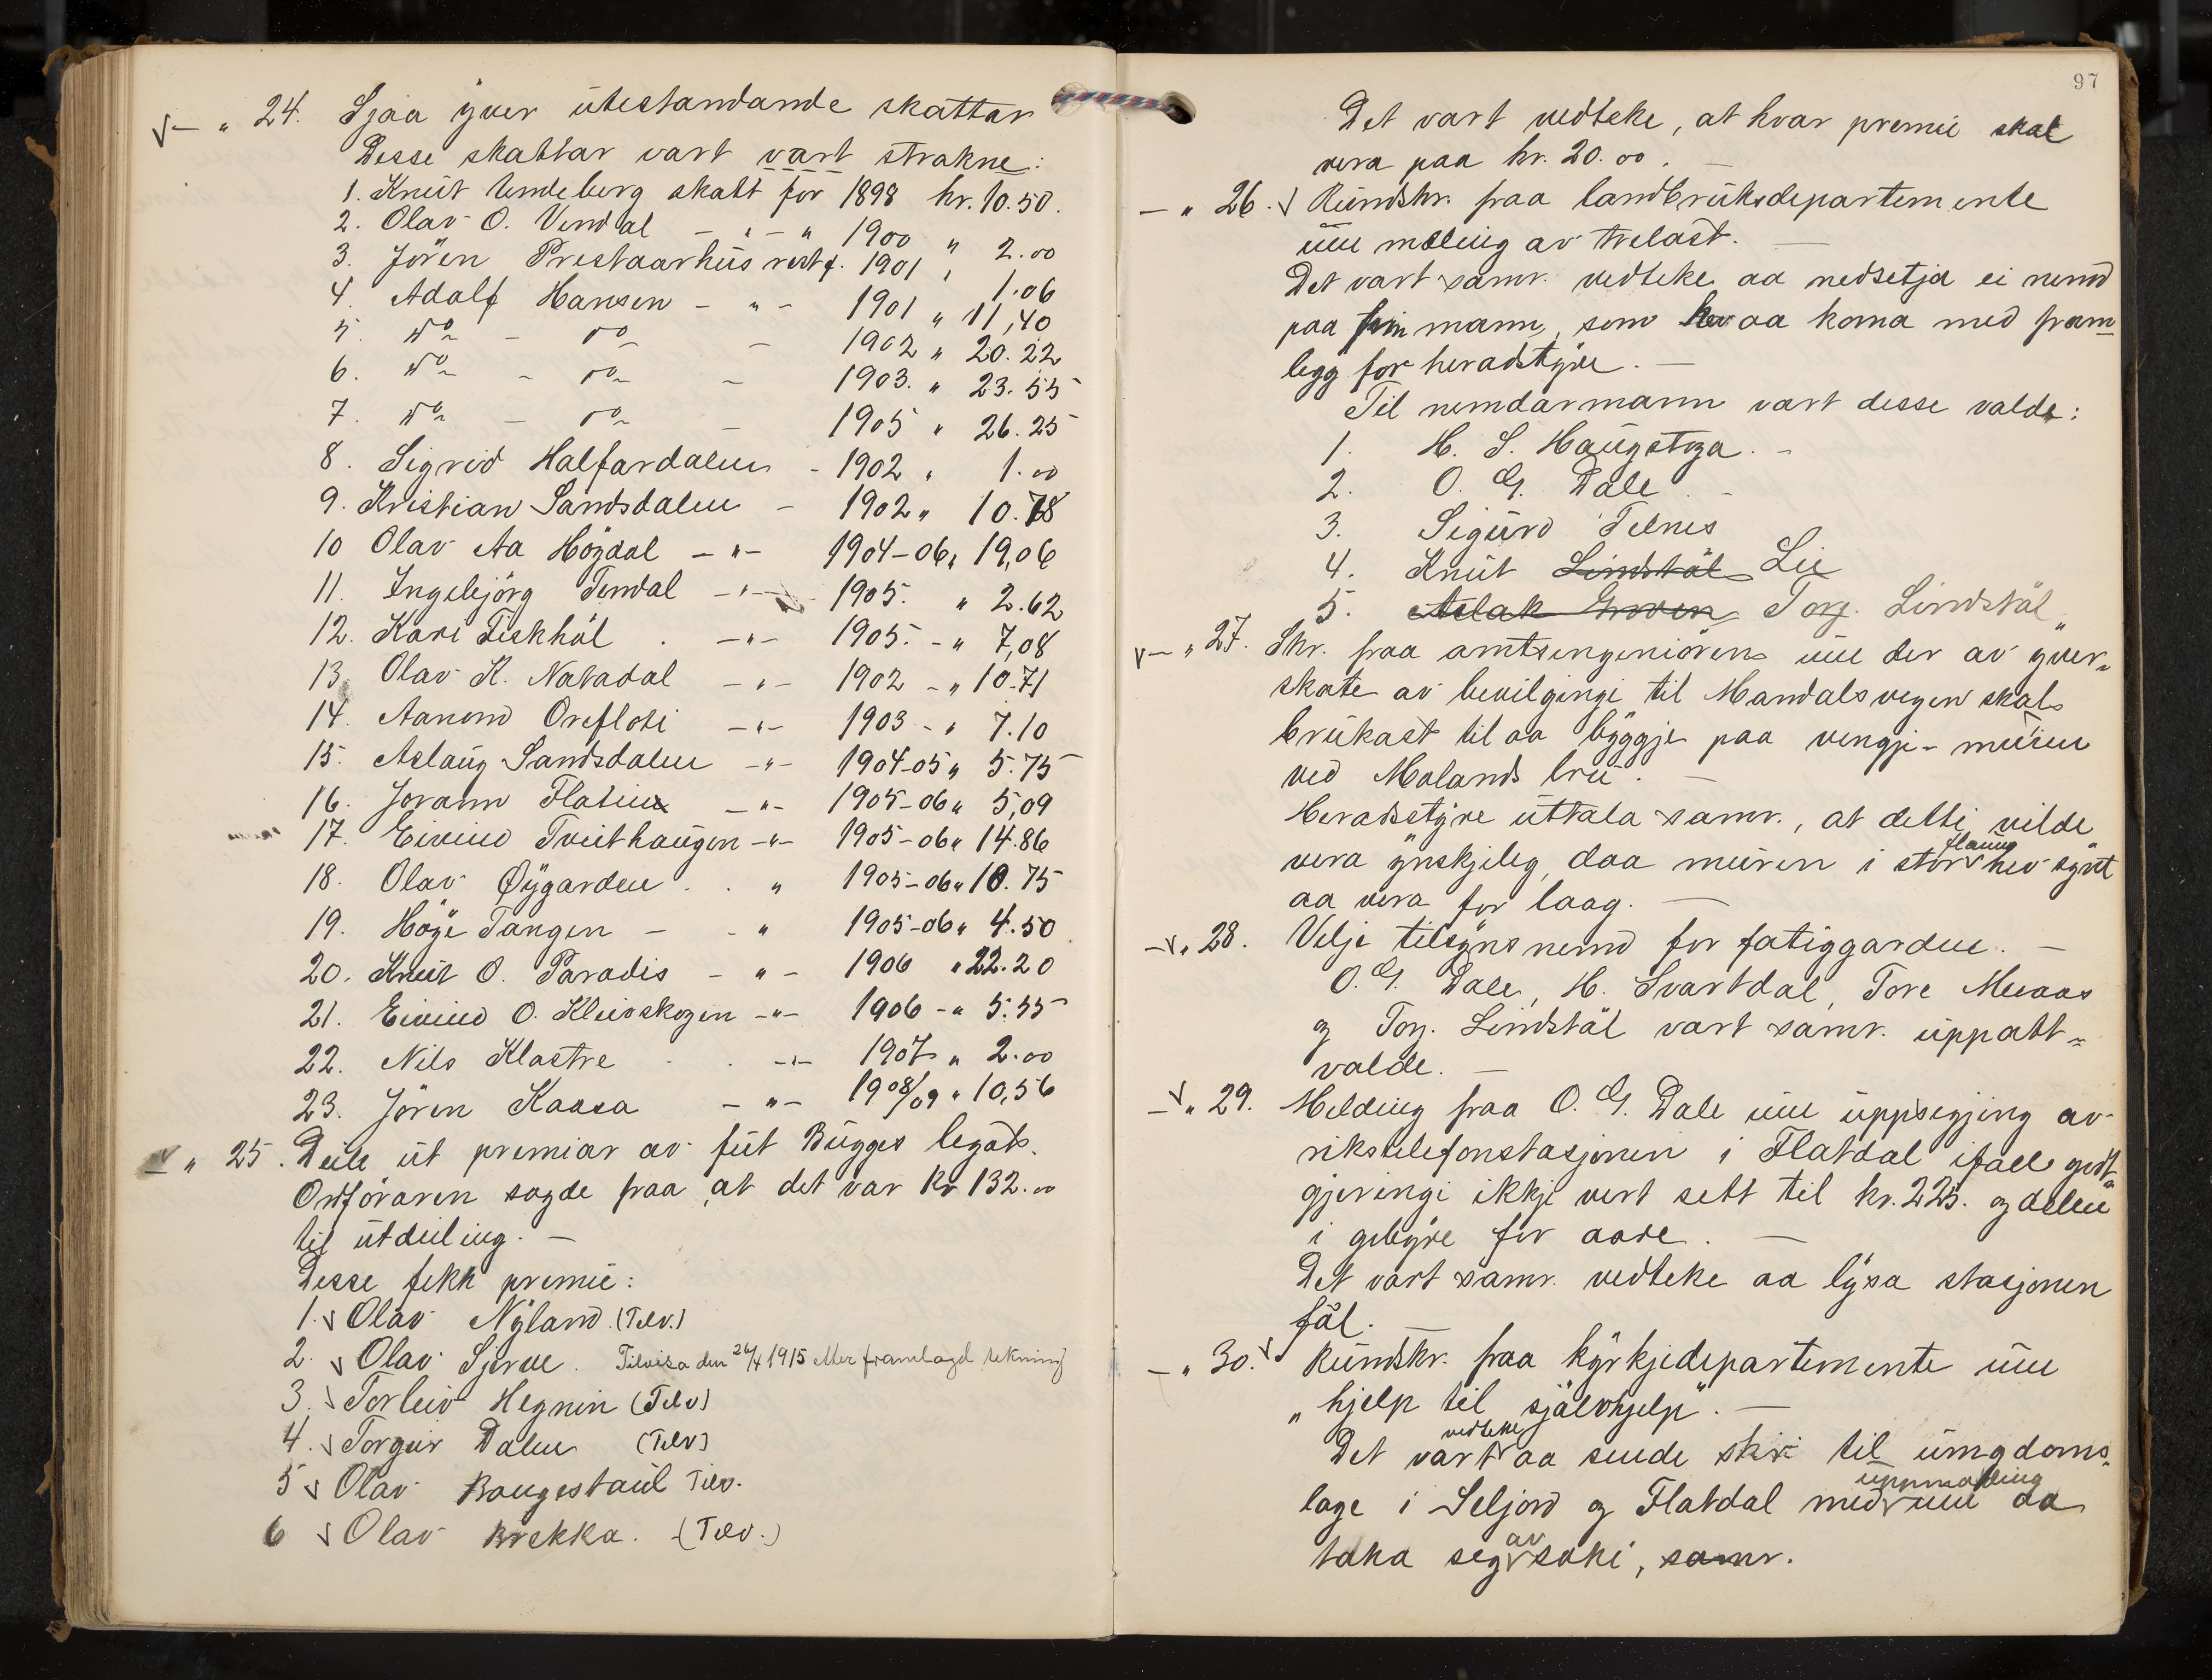 √ – „ 24. Sjaa yver utestandande skattar
Desse skattar vart vart strokne:
1. Knut Lendeberg skatt for 1898 kr. 10.50.
2. Olav O. Vendal - „ - „ 1900 „ 2.00
3. Jören Prestaarhus rest f. 1901 „ 1.06
4. Adolf Hansen - „ - 1901 „ 11,40
5. Do - do - 1902 „ 20.22
6. Do - do - 1903. „ 23.55
7. Do - do - 1905 „ 26.25
8. Sigrid Halfardalen - 1902 „ 1.00
9. Kristian Sandsdalen - 1902 „ 10.78
10 Olav Aa Högdal - „ - 1904-06 „ 19,06
11. Ingebjörg Temdal - „ - 1905. „ 2.62
12. Kari Fiskhöl . - „ - 1905. - „ 7,08
13 Olav K. Natadal - „ - 1902 - „ 10.71
14. Aanond Orefloti - „ - 1903 - „ 7.10
15. Aslaug Sandsdalen - „ - 1904-05 „ 5.75
16. Jorann Flatin - „ - 1905-06 „ 5,09
17. Eivind Tveithaugen - „ - 1905-06 „ 14.86
18. Olav Øygarden . . „ 1905-06 „ 10.75
19. Höge Tangen - - „ 1905-06 „ 4.50
20. Knut O. Paradis - „ - 1906 „ 22.20
21. Eivind O. Kleivskogen - „ - 1906 - „ 5.55
22. Nils Klostre . . - „ - 1907 „ 2.00
23. Jören Kaasa - „ - 1908/09 „ 10,56
√ „ 25. Deile ut premiar av fut Bugges legat.
Ordföraren sagde fraa, at det var kr 132.00
til utdeiling. –
Desse fekk premie:
1. √ Olav Nyland. (Telv.)
2. √ Olav Sjerve. Tilvisa den 26/4 1915 etter framlagd rekning
3. √ Torleiv Hegnin (Telv)
4. √ Torgeir Dalen (Telv)
5 √ Olav Baugestaul Telv.
6 √ Olav Brekka. (Telv.)
97
Det vart vedteke, at hvar premie skal
vera paa kr. 20.00. –
– „ 26. √ Rundskr. fraa landbruksdepartemente
um mæling av trelast. –
Det vart samr. vedteke aa nedsetja ei nemd
paa fem mann, som hev aa koma med fram-
legg for heradstyre. –
Til nemdarmann vart desse valde:
1. H. S. Haugstoga. -
2. O. G. Dale. -
3. Sigurd Telnes
4. Knut Lindstöl Lie
5. Aslak Groven Torj. Lindstöl
√ – „ 27. Skr. fraa amtsingeniören um der av yver-
skote av bevilgingi til Mandalsvegen skal
brukast til aa byggje paa vengje-muren
ved Molands bru. –
Heradsstyre uttala samr., at dette vilde
vera ynskjeleg, daa muren i stor flaum hev synt
aa vera for laag. –
– √ „ 28. Velje tilsynsnemd for fatiggarden. –
O. G. Dale, H. Svartdal, Tore Moraas
og Torj. Lindstöl vart samr. uppatt-
valde. –
– √ „ 29. Melding fraa O. G. Dale um uppsegjing av
rikstelefonstasjonen i Flatdal ifall godt-
gjeringi ikkje vert sett til kr. 225. og delen
i gebyre for aare. –
Det vart samr. vedteke aa lysa stasjonen
fäl. –
– „ 30. √ Rundskr. fraa kyrkjedepartemente um
„hjelp til sjölvhjelp". –
Det vart vedteke aa sende skriv til ungdoms-
lage i Seljord og Flatdal med uppmoding um aa
taka seg av saki, samr.